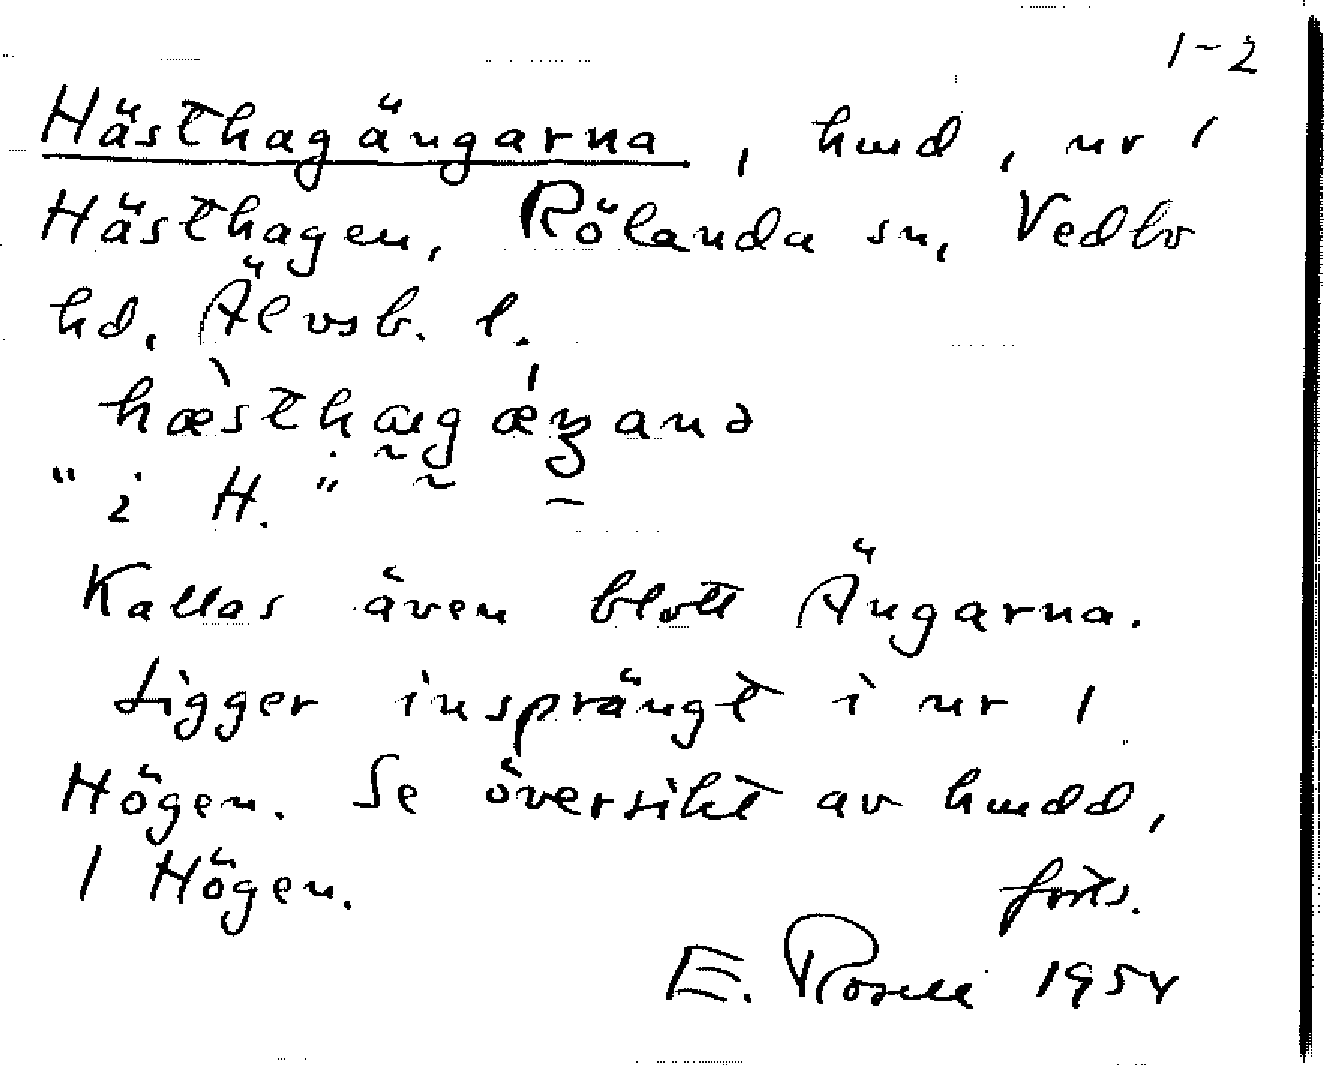 1-2
Hästhagängarna, hmd, nr 1
Hästhagen, Rölanda sn, Vedbo
hd, Älvsb. l.
"i H."
Kallas även blott Ängarna.
Ligger insprängt i nr 1
Högen. Se översikt av hmdd,
1 Högen.
forts.
E. Rosell 1954